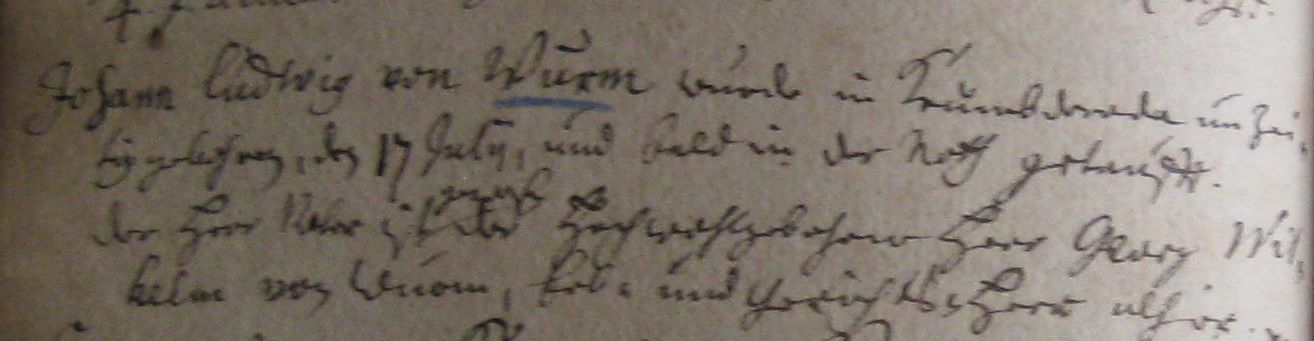 Johann Ludwig von Wurm wurde in Krumbsdorada unzei,
tig gebohren, den 17 July, und bald in der Noth getaufft.
der Herr Vater ist der Hochwohlgebohrne Herr Georg Wil,
helm von Wurm, Erb- und Gerichts-Herr alhier.